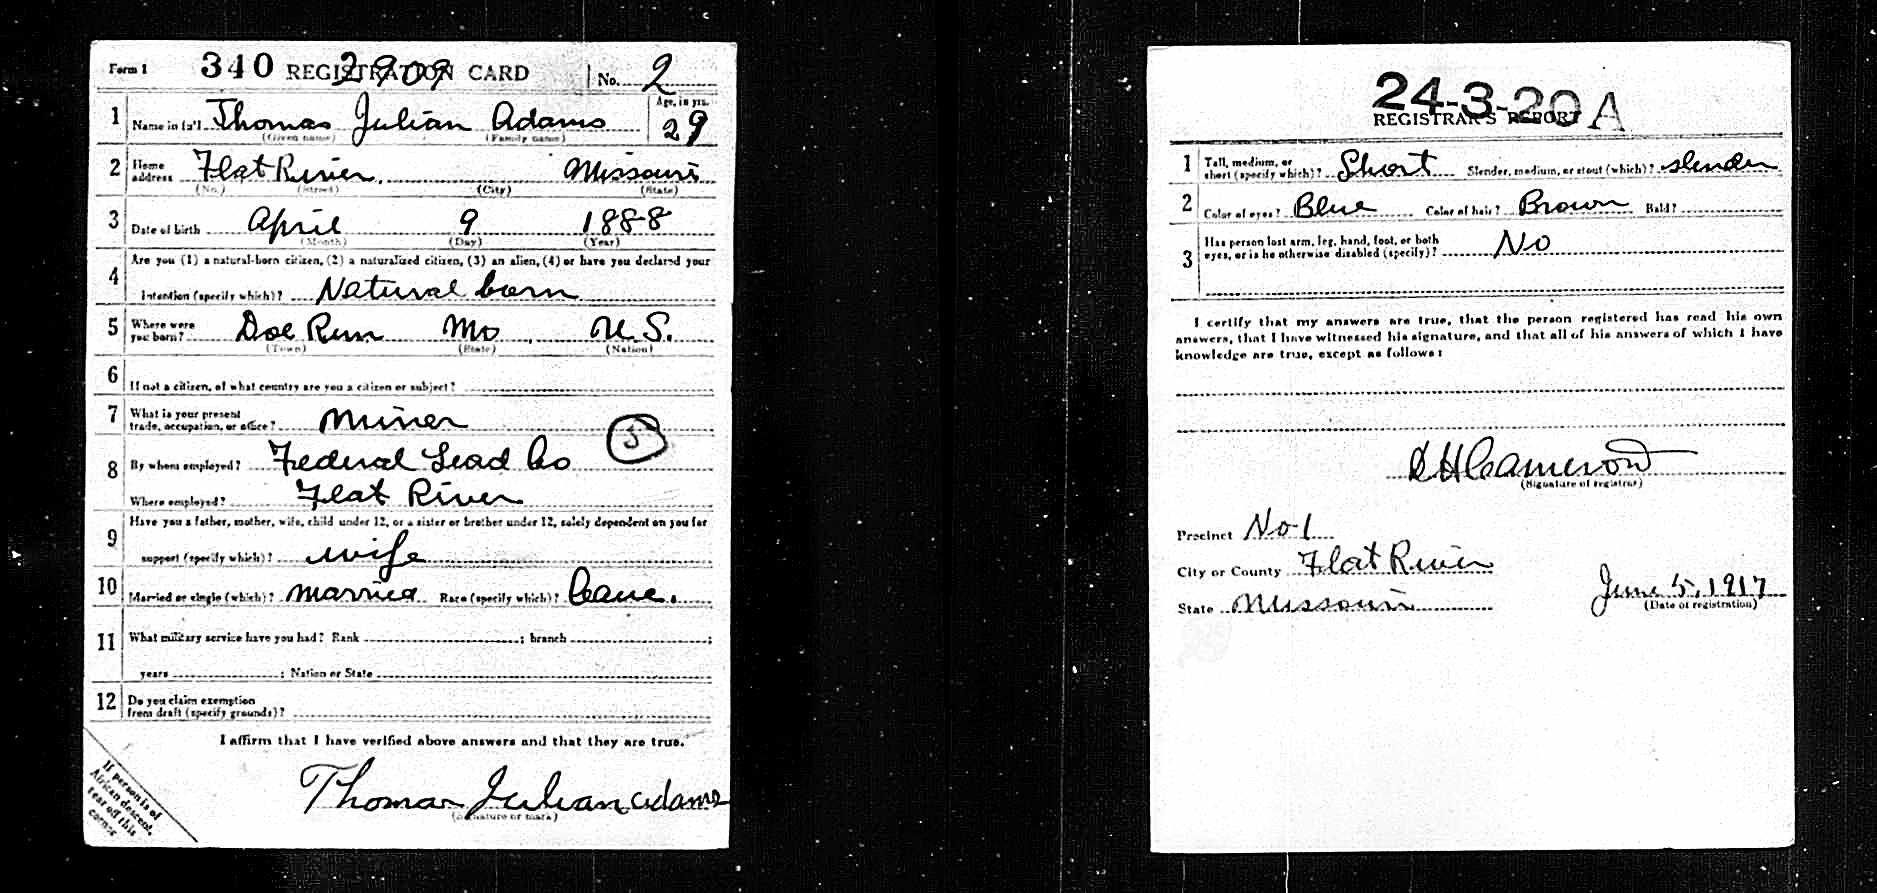 Form 1 340 REGISTRATION CARD No. 2
2909
1 Name in full Thomas Julian Adams Age, in yrs. 29
(Given name) (Family name)
2 Home address Flat River, Missouri
(No.) (Street) (City) (State)
3 Date of birth April 9 1888
(Month) (Day) (Year)
Are you (1) a natural-born citizen, (2) a naturalized citizen, (3) an alien, (4) or have you declared your
4 intention (specify which)? Natural born
5 Where were you born? Doe Run Mo. U.S.
(Town) (State) (Nation)
6 If not a citizen, of what country are you a citizen or subject?
7 What is your present
trade, occupation, or office? Miner
5
8 By whom employed? Federal Lead Co
Where employed? Flat River
Have you a father, mother, wife, child under 12, or a sister or brother under 12, solely dependent on you for
9 support (specify which)? wife
10 Married or single (which)? married Race (specify which)? Cauc.
11 What military service have you had? Rank ; branch ;
years ; Nation or State
12 Do you claim exemption
from draft (specify grounds)?
I affirm that I have verified above answers and that they are true.
Thomas Julian Adams
(Signature or mark)
If person is of
African descent,
tear off this
corner
24-3-20 A
REGISTRAR'S REPORT
1 Tall, medium, or
short (specify which)? Short Slender, medium, or stout (which)? slender
2 Color of eyes? Blue Color of hair? Brown Bald?
3 Has person lost arm, leg, hand, foot, or both
eyes, or is he otherwise disabled (specify)? No
I certify that my answers are true, that the person registered has read his own
answers, that I have witnessed his signature, and that all of his answers of which I have
knowledge are true, except as follows:
Cameron
(Signature of registrar)
Precinct No 1
City or County Flat River
State Missouri June 5, 1917
(Date of registration)